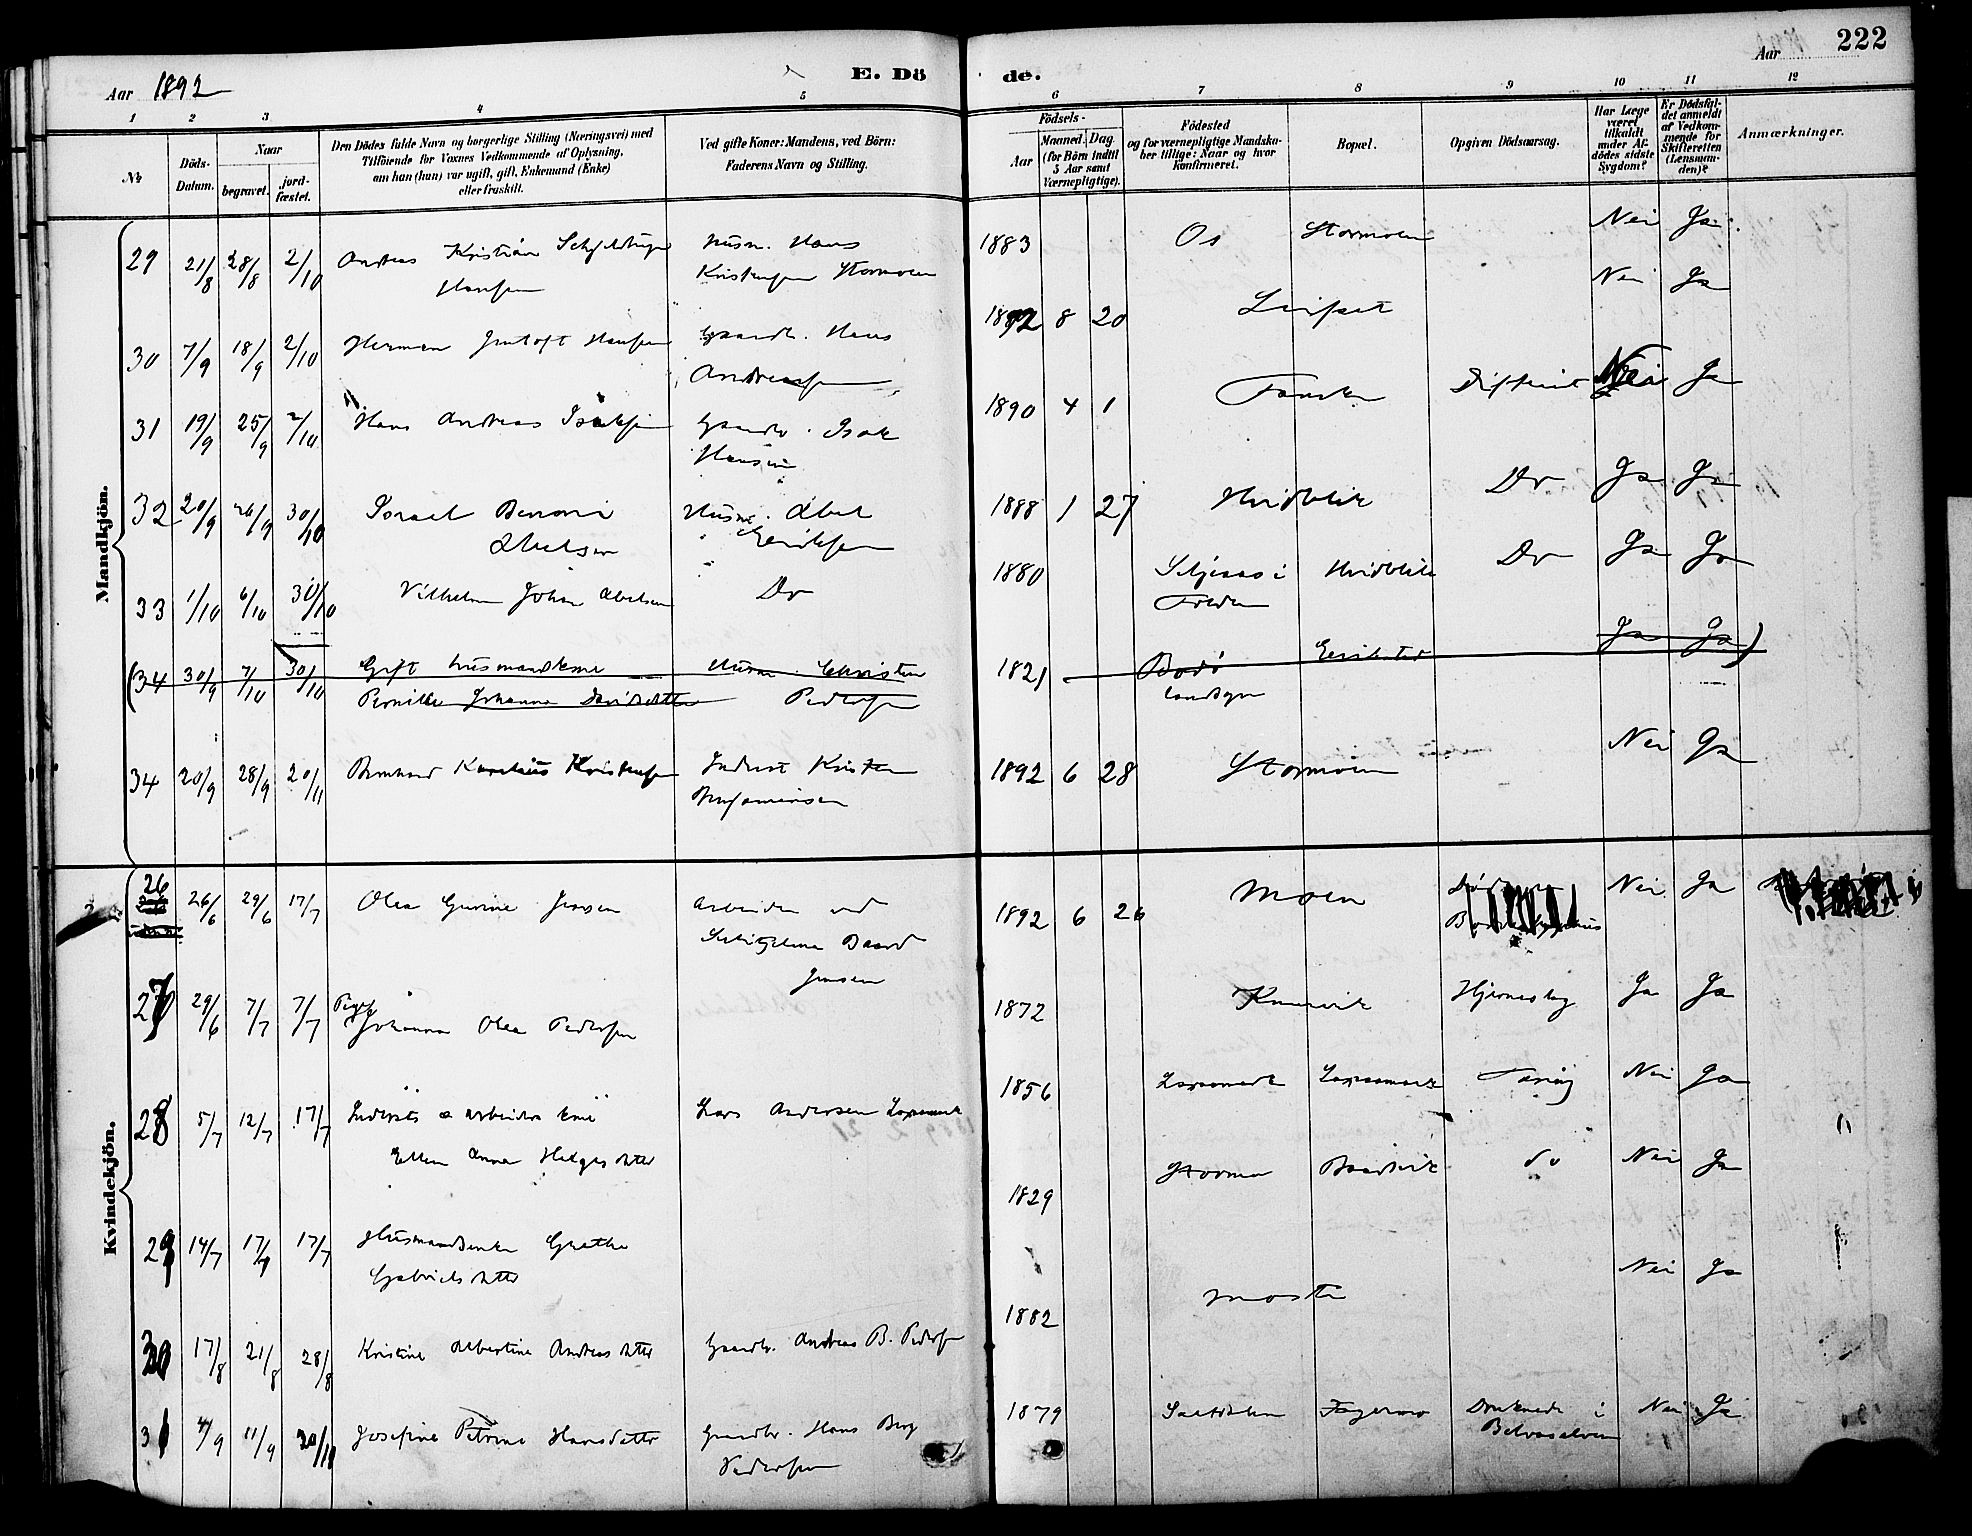 Aar 1892
E. Döde.
Aar
222
1 2 3 4 5 6 7 8 9 10 11 12
No
Döds-Datum.
Naar
begravet.
jord-fæstet.
Den Dödes fulde Navn og borgerlige Stilling (Næringsvei) med
Tilföiende for Voxnes Vedkommende af Oplysning,
om han (hun) var ugift, gift, Enkemand (Enke)
eller fraskilt.
Ved gifte Koner: Mandens, ved Börn:
Faderens Navn og Stilling.
Födsels-
Aar
Maaned. Dag
(for Börn indtil
5 Aar samt
Værnepligtige).
Födested
og for værnepligtige Mandskaber tillige: Naar og hvor
konfirmeret.
Bopæl.
Opgiven Dödsaarsag.
Har Læge
været
tilkaldt
under Afdödes sidste
Sygdom?
Er Dödsfaldet anmeldt
af Vedkommende for
Skifteretten
(Lensmanden)?
Anmærkninger.
Mandkjön.
29 21/8 28/8 2/10 Andreas Kristian
Hansen
Husm. Hans
Kristensen Stormoen
1883 Os Stormoen Nei Ja
30 7/9 18/9 2/10 Herman Hansen
Gaardb. Hans
Andreassen
1892 8 20 Leifset Nei Ja
31 19/9 25/9 2/10 Hans Andreas Isaksen
Gaardbr. Isak
Hansen
1890 4 1 Difterit Nei Ja
32 20/9 26/9 30/10 Israel Benoni
Abelsen
Husm. Abel
Henriksen
1888 1 27 Hvidblik Do Ja Ja
33 1/10 6/10 30/10 Vilhelm Johan Abelsen
Do
1880 i
Folden
Hvidblik Do Ja Ja
(34 30/9 7/10 30/10 Gift husmandskone
Pernille Johanna Davidsdatter
Husm. Christen
Pedersen
1821 Bodö
landsogn
Ja Ja)
34 20/9 28/9 20/11 Bernhard Kornelius Kristensen
Inderst Kristen
Benjaminsen
1892 6 28 Stormoen Nei Ja
Kvindekjön.
26 26/6 29/6 17/7 Olea Gurine Jensen
Arbeider ved
Sulitjelma Baard
Jensen
1892 6 26 Moen Nei Ja
27 29/6 7/7 7/7 Pige
Johanna Olea Pedersen
1872 Kvænvik Ja Ja
28 5/7 12/7 17/7 Inderst & arbeiders kone
Ellen Anna Helgesdatter
Lars Andersen
1856 Tæring Nei Ja
29 14/7 17/7 17/7 Husmandsenke Grethe
Gabrielsdatter
1829 do Nei Ja
30 17/8 21/8 28/8 Kristine Albertine Andreasdatter
Gaardbr. Andreas B. Pedersen
1882 Nei Ja
31 4/9 11/9 30/10 Josefine Petrine Hansdatter
Gaardbr. Hans Berg
Pedersen
1879 Saltdalen Fagermo Druknede i
Nei Ja